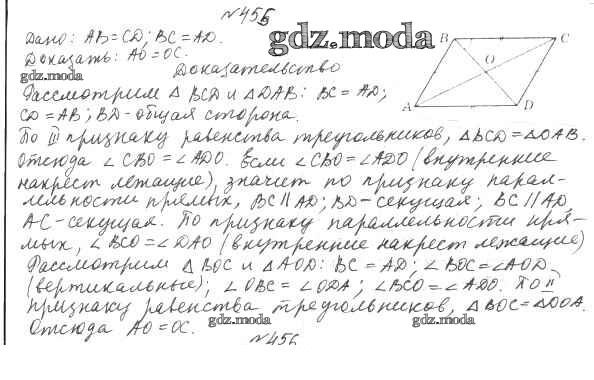 №455
Дано: AB=CD; BC=AD.
gdz.moda
Доказать: AO=OC.
gdz.moda
Доказательство
B C O A D
Рассмотрим △ BCD и △DAB: BC=AD;
CD=AB; BD-общая сторона.
По III признаку равенства треугольников, △BCD=△DAB.
Отсюда ∠CBO=∠ADO. Если ∠CBO=∠ADO (внутренние
накрест лежащие), значит по признаку парал-
лельности прямых, BC∥AD; BD-секущая; BC∥AD,
AC-секущая. По признаку параллельности пря-
мых, ∠BCO=∠DAO (внутренние накрест лежащие)
Рассмотрим △ BOC и △AOD: BC=AD; ∠BOC=∠AOD
(вертикальные); ∠OBC=∠ODA; ∠BCO=∠ADO. По II
признаку равенства треугольников, △BOC=△DOA.
Отсюда AO=OC. gdz.moda gdz.moda
№456